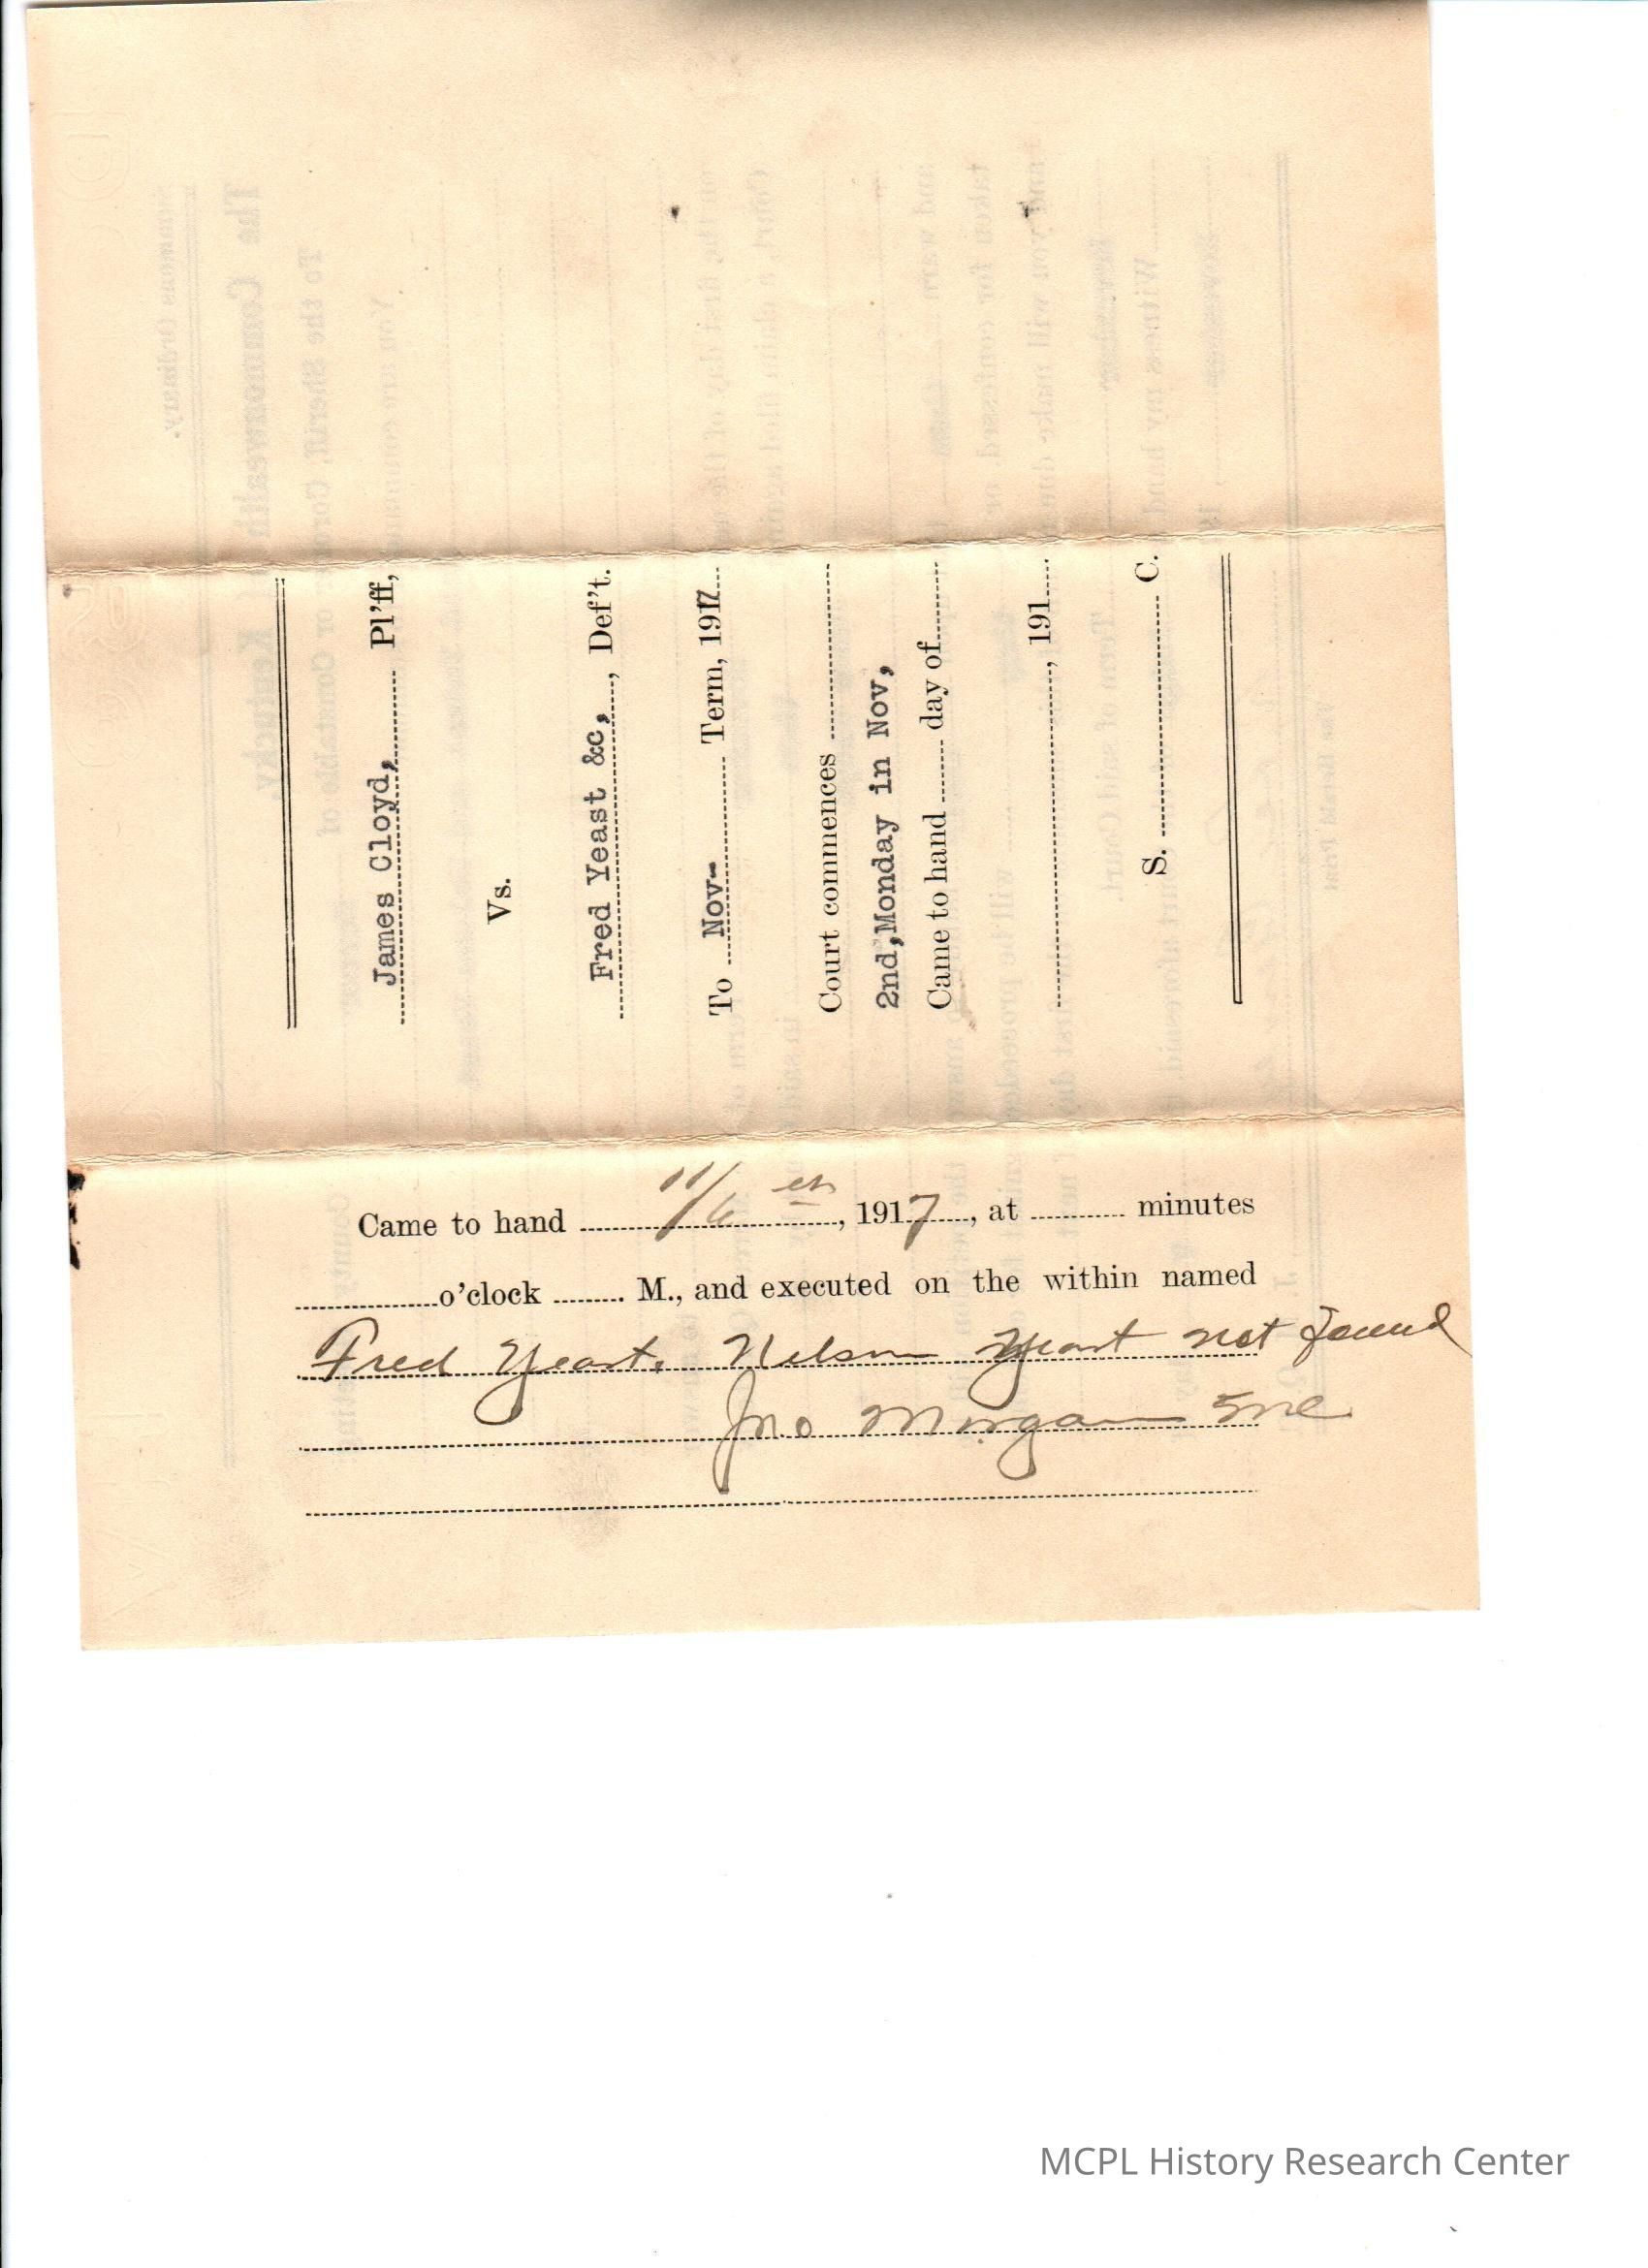 James Cloyd, Pl'ff,
Vs.
Fred Yeast &c, , Def't.
To Nov- Term, 1917
Court commences
2nd,Monday in Nov,
Came to hand day of
, 191
S. C.
Came to hand 11/6 th, 1917, at minutes
o'clock M., and executed on the within named
Fred Yeast, Nelson Yeast not found
Jno Morgan
MCPL History Research Center